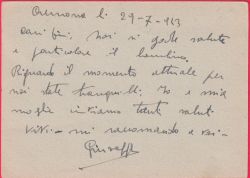 Cremona li 29-7-943
Cari figli: Noi si gode salute
e particolare il bambino.
Riguardo il momento attuale per
noi state tranquilli. Io e mia
moglie inviamo tanti saluti
Vi - mi raccomando e
Giuseppe